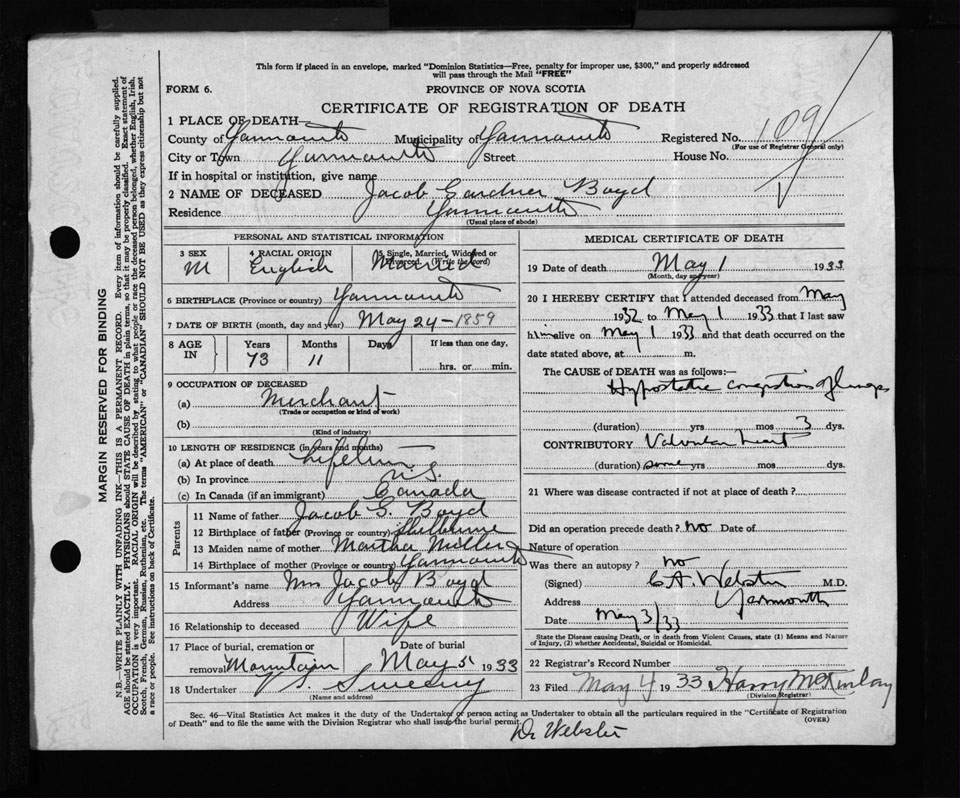 This form if placed in an envelope, marked "Dominion Statistics—Free, penalty for improper use, $300," and properly addressed
will pass through the Mail "FREE"
FORM 6. PROVINCE OF NOVA SCOTIA
CERTIFICATE OF REGISTRATION OF DEATH
1 PLACE OF DEATH—
County of Yarmouth Municipality of Yarmouth Registered No. 109
(For use of Registrar General only)
City or Town Yarmouth Street House No.
If in hospital or institution, give name
2 NAME OF DECEASED Jacob Gardner Boyd
Residence Yarmouth
(Usual place of abode)
PERSONAL AND STATISTICAL INFORMATION
3 SEX 4 RACIAL ORIGIN 5 Single, Married, Widowed or Divorced. (Write the word)
M English Married
6 BIRTHPLACE (Province or country) Yarmouth
7 DATE OF BIRTH (month, day and year) May 24-1859
8 AGE IN Years Months Days If less than one day,
73 11 hrs. or min.
9 OCCUPATION OF DECEASED
(a) Merchant
(Trade or occupation or kind of work)
(b)
(Kind of industry)
10 LENGTH OF RESIDENCE (in years and months)
(a) At place of death Lifetime
(b) In province N.S.
(c) In Canada (if an immigrant) Canada
Parents
11 Name of father Jacob G. Boyd
12 Birthplace of father (Province or country) Shelburne
13 Maiden name of mother Martha
14 Birthplace of mother (Province or country) Yarmouth
15 Informant's name Mrs Jacob Boyd
Address Yarmouth
16 Relationship to deceased Wife
17 Place of burial, cremation or Date of burial
removal Mountain May 5 1933
18 Undertaker V.S. Sweeny
(Name and address)
MEDICAL CERTIFICATE OF DEATH
19 Date of death May 1 1933
(Month, day and year)
20 I HEREBY CERTIFY that I attended deceased from May
1932 to May 1 1933 that I last saw
him alive on May 1 1933 and that death occurred on
date stated above, at m.
The CAUSE of DEATH was as follows:—
Hypostatic congestion of lungs
(duration) yrs mos 3 dys.
CONTRIBUTORY Valvular heart
(duration) some yrs mos dys.
21 Where was disease contracted if not at place of death?
Did an operation precede death? no Date of
Nature of operation
Was there an autopsy? no
(Signed) C.A. Webster M.D.
Address Yarmouth
Date May 3/33
State the Disease causing Death, or in death from Violent Causes, state (1) Means and Nature
of Injury, (2) whether Accidental, Suicidal or Homicidal.
22 Registrar's Record Number
23 Filed May 4 1933 Harry McKinlay
(Division Registrar)
Sec. 46—Vital Statistics Act makes it the duty of the Undertaker or person acting as Undertaker to obtain all the particulars required in the "Certificate of Registration
of Death" and to file the same with the Division Registrar who shall issue the burial permit. (OVER)
Dr Webster
MARGIN RESERVED FOR BINDING
N.B.—WRITE PLAINLY WITH UNFADING INK—THIS IS A PERMANENT RECORD. Every item of information should be carefully supplied.
AGE should be stated EXACTLY. PHYSICIANS should STATE CAUSE OF DEATH in plain terms, so that it may be properly classified. Exact statement of
OCCUPATION is very important. RACIAL ORIGIN will be described by stating to what people or race the deceased person belonged, whether English, Irish,
Scotch, French, German, Russian, Ruthenian, etc. The terms "AMERICAN" or "CANADIAN" SHOULD NOT BE USED as they express citizenship but not
a race or people. See instructions on back of Certificate.